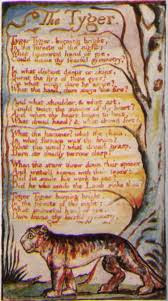 The Tyger.
Tyger Tyger. burning bright,
In the forests of the night;
What immortal hand or eye,
Could frame thy fearful symmetry?
In what distant deeps or skies.
Burnt the fire of thine eyes?
On what wings dare he aspire?
What the hand, dare sieze the fire?
And what shoulder, & what art,
Could twist the sinews of thy heart?
And when thy heart began to beat,
What dread hand? & what dread feet?
What the hammer? what the chain,
In what furnace was thy brain?
What the anvil? what dread grasp,
Dare its deadly terrors clasp?
When the stars threw down their spears
And water'd heaven with their tears:
Did he smile his work to see?
Did he who made the Lamb make thee?
Tyger Tyger burning bright,
In the forests of the night:
What immortal hand or eye,
Dare frame thy fearful symmetry?